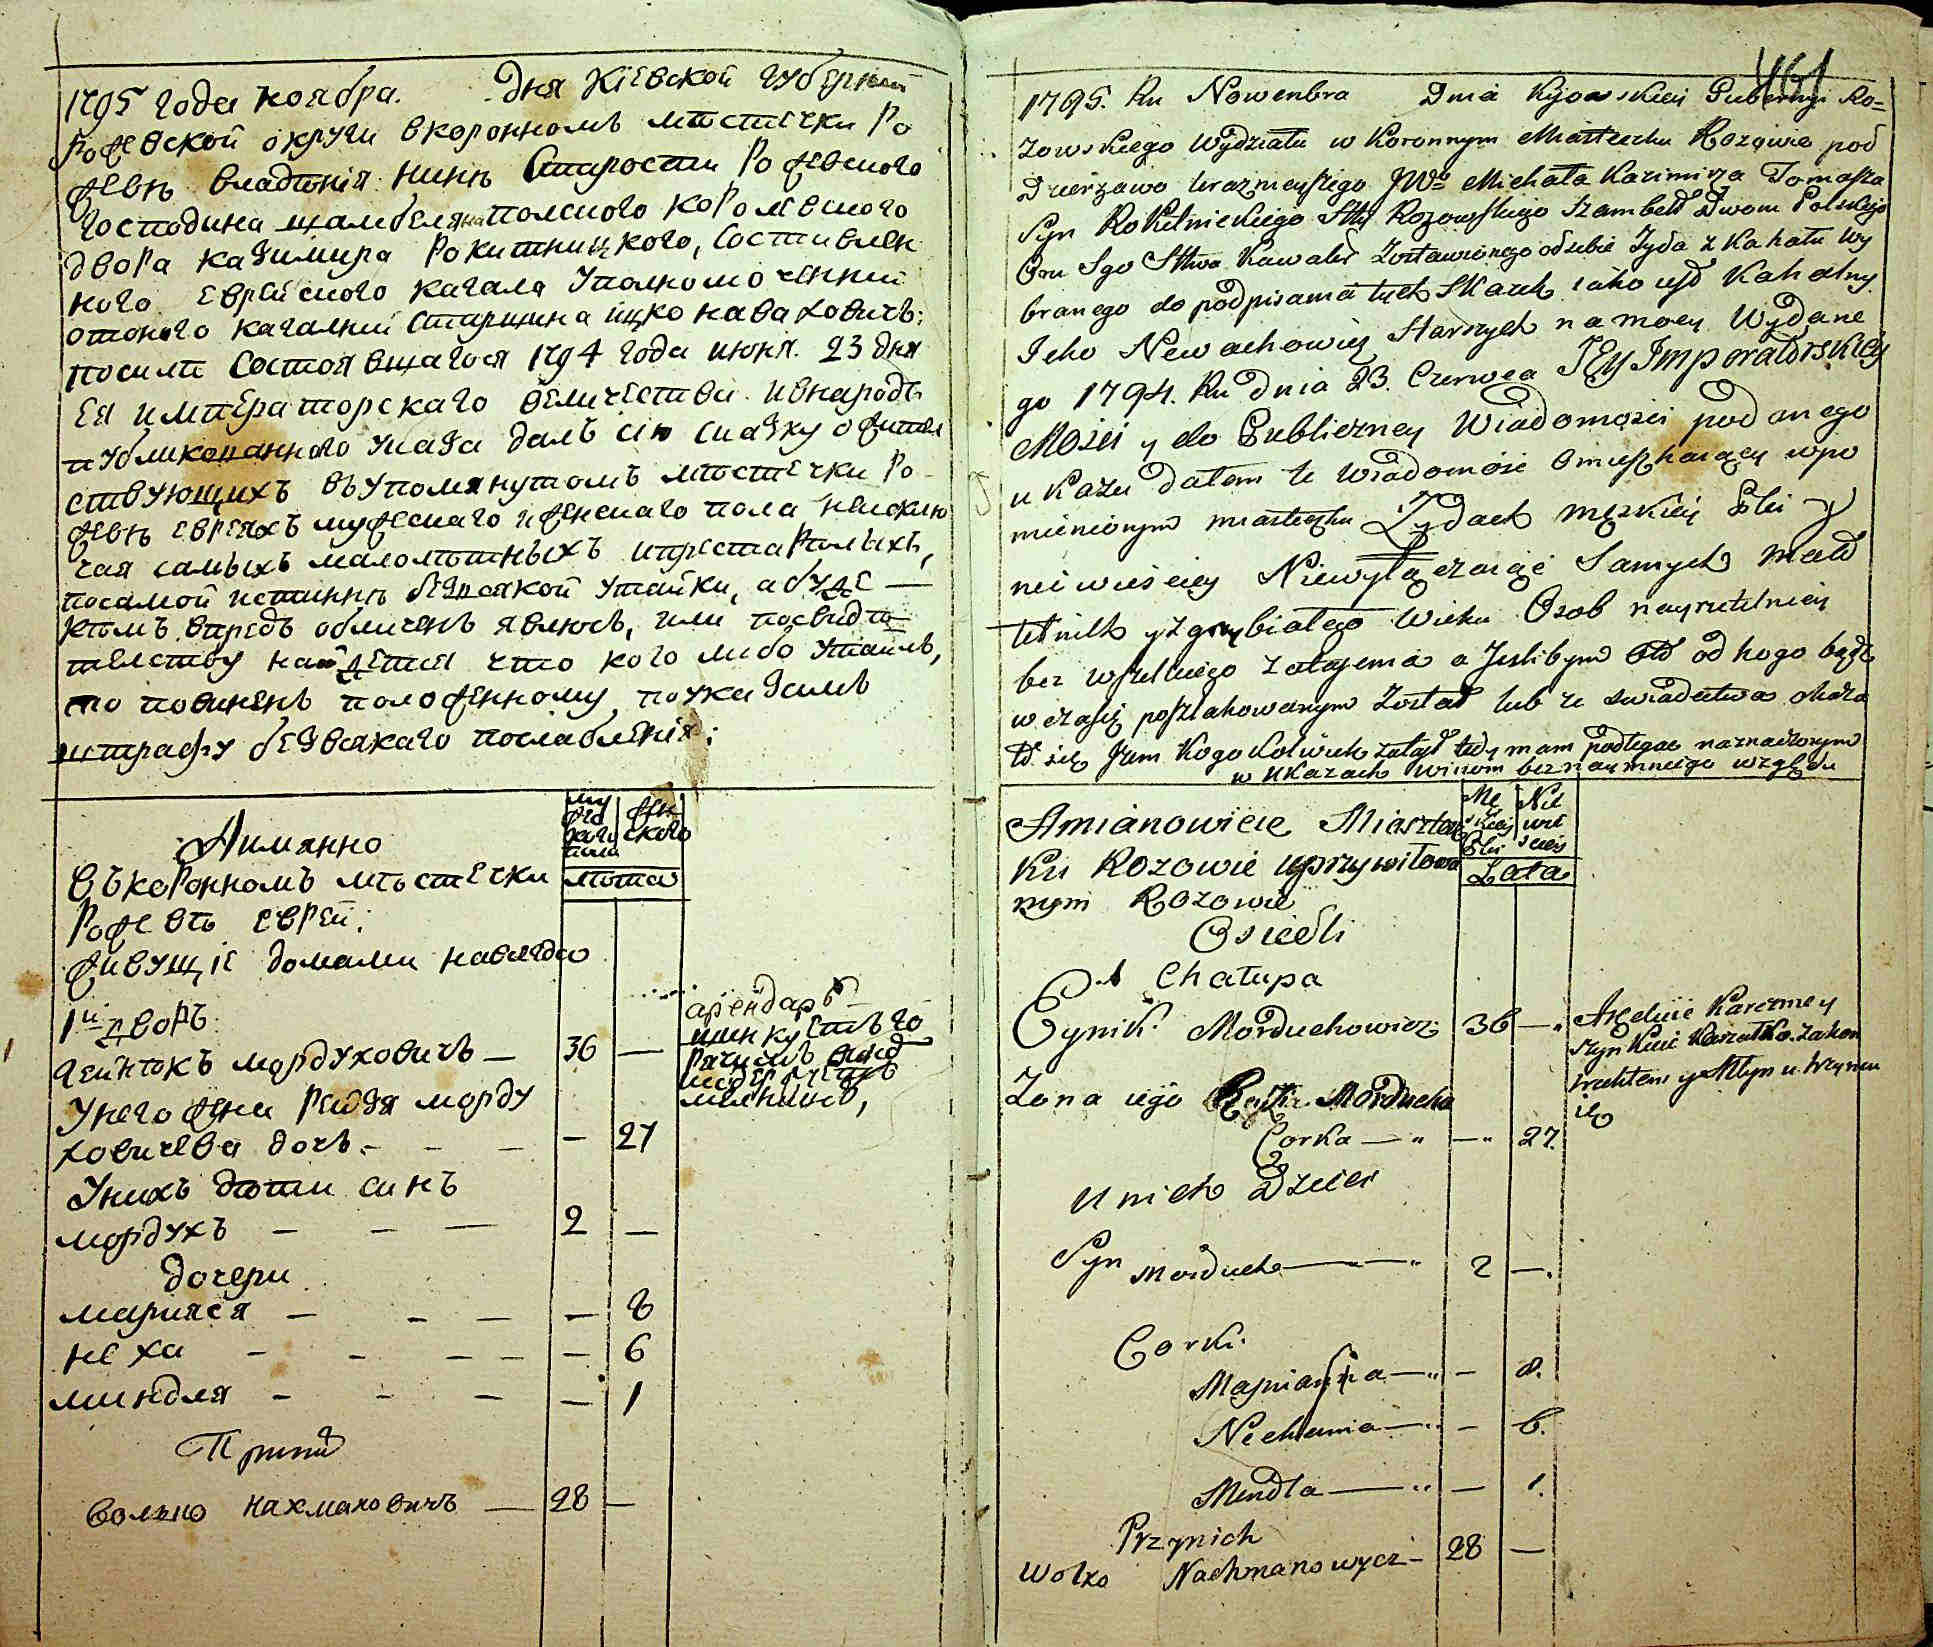 1795 года ноября. Дня Кіевской губерніи
Рожевской округи в коронномъ мѣстечки Ро
жевѣ владѣнія нинѣ Старости Рожевского
господина шамбеляна полского королевского
двора казимира Рокитницкого, Составлен
ного Еврейского кагала Уполномоченний
отоного кагалний старшина ицко наваховичъ:
посилѣ состоявшагося 1794 года июня. 23 дня
Ея императорскаго величества. и внародъ
публикованного указа далъ сію сказку о жител
ствующихъ въупомянутомъ мѣстечки Ро
жевѣ евреяхъ мужескаго и женскаго пола неисклю
чая самыхъ маломѣтныхъ ипрестарѣлыхъ,
посамой истиннѣ безвсякой утайки, а буде —
кѣмъ впредъ обличенъ явлюсь, или посвидѣ
телству найдется что кого либо утаилъ,
то повиненъ положенному по указамъ
штрафу безвсякаго послабленія:
Аимянно
му
же
ского
пола
жен
ского
лѣта
Въкоронномъ мѣстечки
Рожевѣ еврей:
живущіе домами
1й дворъ
арендаръ
Гейнокъ мордуховичъ — 36 —
Унего жена Рейзя морду
ховичева дочь. — — 27
Унихъ дѣти синъ
мордухъ — — — 2 —
дочери
марияся — — — — 8
неха — — — — — 6
миндля — — — — 1
При ній
волько нахмановичъ — 28 —
461
1795. Ru Nowenbra Dnia Kijowskiei Gubernyi Ro=
zowskiego Wydziału w Koronnym Miasteczku Rozowie pod
Dzierżawo terazmeyszego JWo Michała Kazimirza Tomasza
Syn Rokitnickiego Stty Rozowskiego Szambell Dworu Polskiego
Oru Sgo Sttwa Kawaler Zostawionego odsebie Zyda z Kahału wy
branego do podpisania tych Skazek iako usd Kahalny
Icko Newachowicz Starszych na mocy Wydane
go 1794. Ru dnia 23. Czerwca JEy Imperatorskiey
Mości y do Publiczney Wiadomości podanego
ukazu dałem te wiadomośc Omieszkaiący wpo
mienionym miasteczku Zydach męzkiey Płci y
niewiesciey Niewyłączaiąc Samych mało
letnich y zgrzybiałego Wieku Osob nayrzetelniey
bez wszelkiego zatajenia a Jeslibym był od kogo bądz
w czasie poszlakowanym został lub ze swiadectwa okaza
ło się Jzem Kogo Kolwiek zataił tedy mam podlegac naznaczonym
w ukazach winom beznaymnieigo względu
Amianowicie Miastecz
Ku Rozowie uprzywilowa
nym Rozowie
Osiedli
Mę
skiey
Płci
Nie
wie
sciey
Lata
1 Chałupa
Cynik Morduchowicz 36 —
Zona iego Morducha
Corka — — 27.
U nich Dzieci
Syn Morducho — 2 —.
Corki.
Maśniaszka — — 8.
Nechania — — 6.
Mendla — — 1.
Przynich
Wolko Nachmanowycz — 28 —